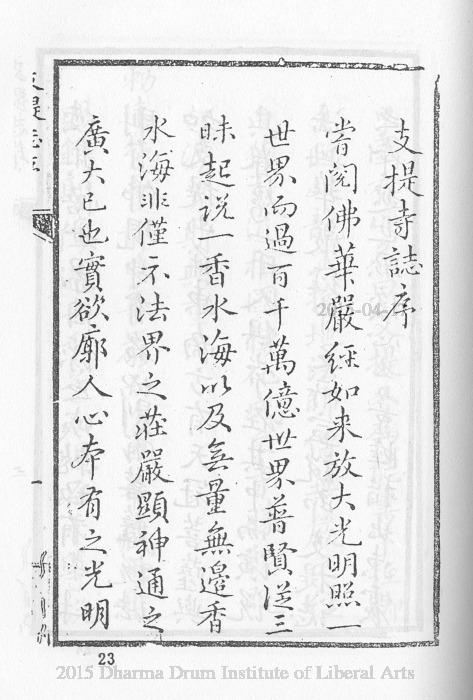 支提寺誌序
嘗閱佛華嚴經如来放大光明照一
世界而過百千萬億世界普賢從三
昧起说一香水海以及無量無邊香
水海非僅示法界之莊嚴顯神通之
廣大已也實欲廓人心本有之光明
支提誌序
一
23
2015 Dharma Drum Institute of Liberal Arts